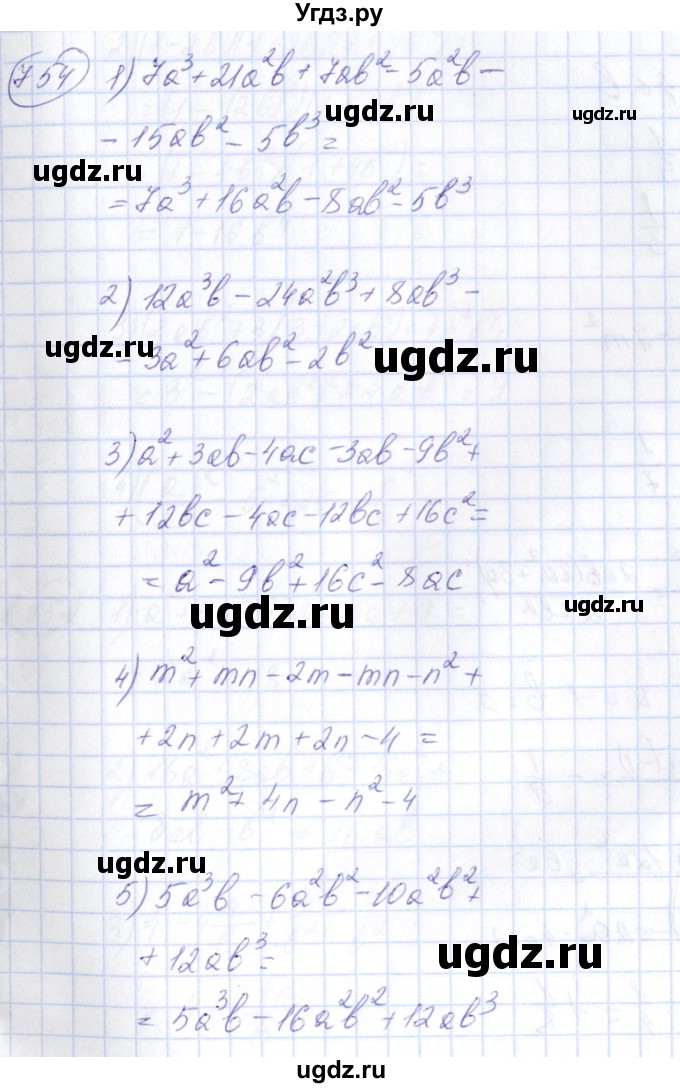 Угдз.ру
754 1) 7a³ + 21a²b + 7ab² - 5a²b -
ugdz.ru
- 15ab² - 5b³ =
ugdz.ru
= 7a³ + 16a²b - 8ab² - 5b³
ugdz.ru
2) 12a³b - 24a²b³ + 8ab³ -
ugdz.ru
- 3a² + 6ab² - 2b²
ugdz.ru
3) a² + 3ab - 4ac - 3ab - 9b² +
ugdz.ru
+ 12bc - 4ac - 12bc + 16c² =
ugdz.ru
= a² - 9b² + 16c² - 8ac
ugdz.ru
ugdz.ru
4) m² + mn - 2m - mn - n² +
ugdz.ru
+ 2n + 2m + 2n - 4 =
= m² + 4n - n² - 4
ugdz.ru
ugdz.ru
5) 5a³b - 6a²b² - 10a²b² +
+ 12ab³ =
ugdz.ru
= 5a³b - 16a²b² + 12ab³
ugdz.ru